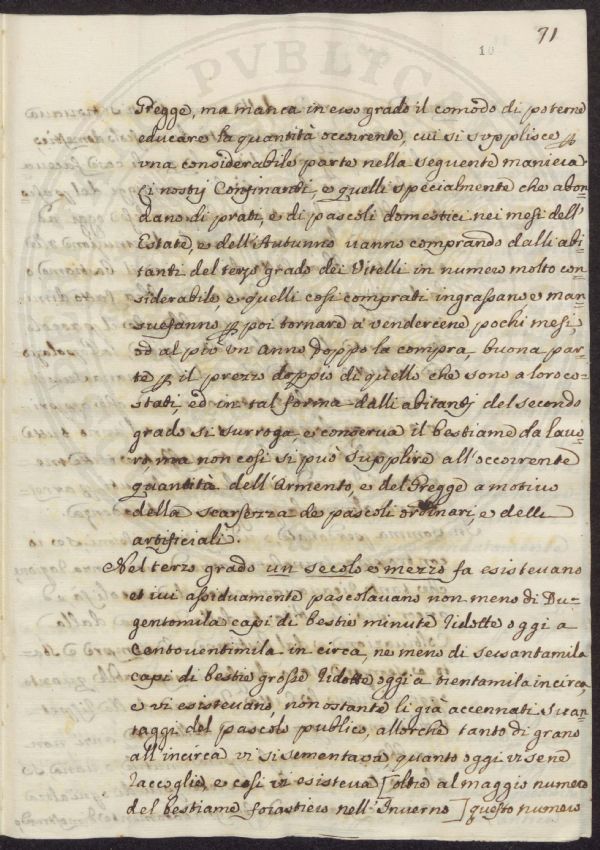 71
10
PVBLICA
Gregge, ma manca in esso grado il comodo di poterne
educare la quantità occorrente, cui si supplisce per
una considerabile parte nella seguente maniera
I nostrj Confinanti, e quelli specialmente che abon-
dano di prati, e di pascoli domestici nei mesi dell'
Estate, e dell'Autunno vanno comprando dalli abi-
tanti del terzo grado dei Vitelli in numero molto con
siderabile, e quelli così comprati ingrassano e man-
suefanno per poi tornare a vendercene pochi mesi
od al più un anno doppo la compra, buona par-
te per il prezzo doppio di quello che sono a loro co-
stati, ed in tal forma dalli abitantj del secondo
grado si surroga e conserva il bestiame da lavo-
ro, ma non così si può supplire all'occorrente
quantità dell'Armento, e del Gregge a motivo
della scarsezza de pascoli ordinari, e delli
artificiali.
Nel terzo grado un secolo e mezzo fa esistevano
et ivi assiduamente pascolavano non meno di Du-
gentomila capi di bestie minute ridotte oggi a
Centoventimila in circa, ne meno di sessantamila
capi di bestie grosse ridotte oggi a trentamila incirca,
e vi esistevano, non ostante li già accennati svan-
taggi del pascolo publico, allorchè tanto di grano
all'incirca vi si sementava quanto oggi vi sene
raccoglie, e così vi esisteva [oltre al maggio numero
del bestiame forastiero nell'Inverno] questo numero